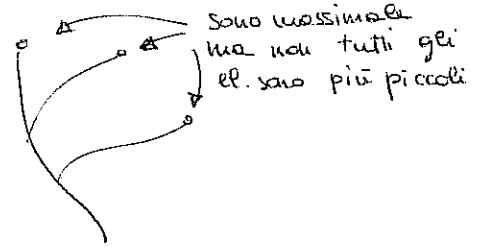 sono massimali
ma non tutti gli
el. sono più piccoli